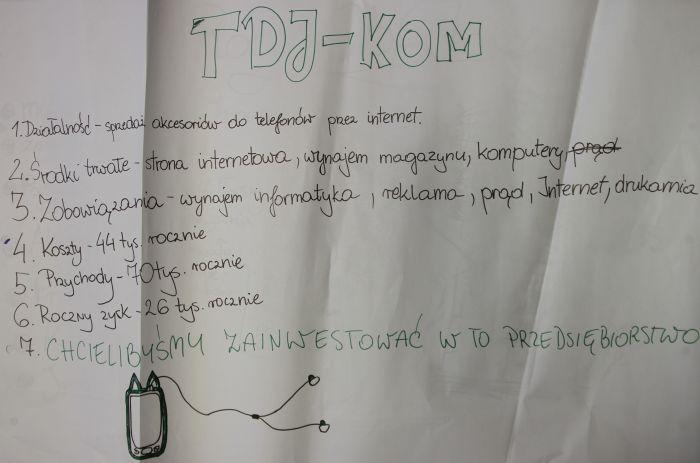 TDJ-KOM
1. Działalność - sprzedaż akcesoriów do telefonów przez internet.
2. Środki trwałe - strona internetowa, wynajem magazynu, komputery, prąd
3. Zobowiązania - wynajem informatyka, reklama, prąd, Internet, drukarnia
4. Koszty - 44 tys. rocznie
5. Przychody - 70 tys. rocznie
6. Roczny zysk - 26 tys. rocznie
7. CHCIELIBYŚMY ZAINWESTOWAĆ W TO PRZEDSIĘBIORSTWO